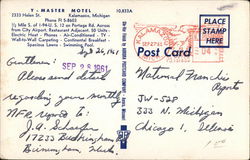 T - MASTER MOTEL 10,833A
2333 Helen St. Kalamazoo, Michigan
Phone FI 5-8603
1/2 Mile S. of I-94-U. S. 12 on Portage Rd. Across
from City Airport. Restaurant Adjacent. 50 Units -
Electric Heat - Phones - Air-Conditioned - TV -
Wall-to-Wall Carpeting - Continental Breakfast -
Spacious Lawns - Swimming Pool.
Sept 26, 1961
Gentlemen:
SEP 28 1961
Please send details
regarding your
J. A. Schafer
17235
Birmingham, Mich.
KALAMAZOO
SEP 27 '61
PLACE
STAMP
HERE
Post Card
National Franchise
Agents
JW-528
333 N. Michigan
Chicago 1, Illinois